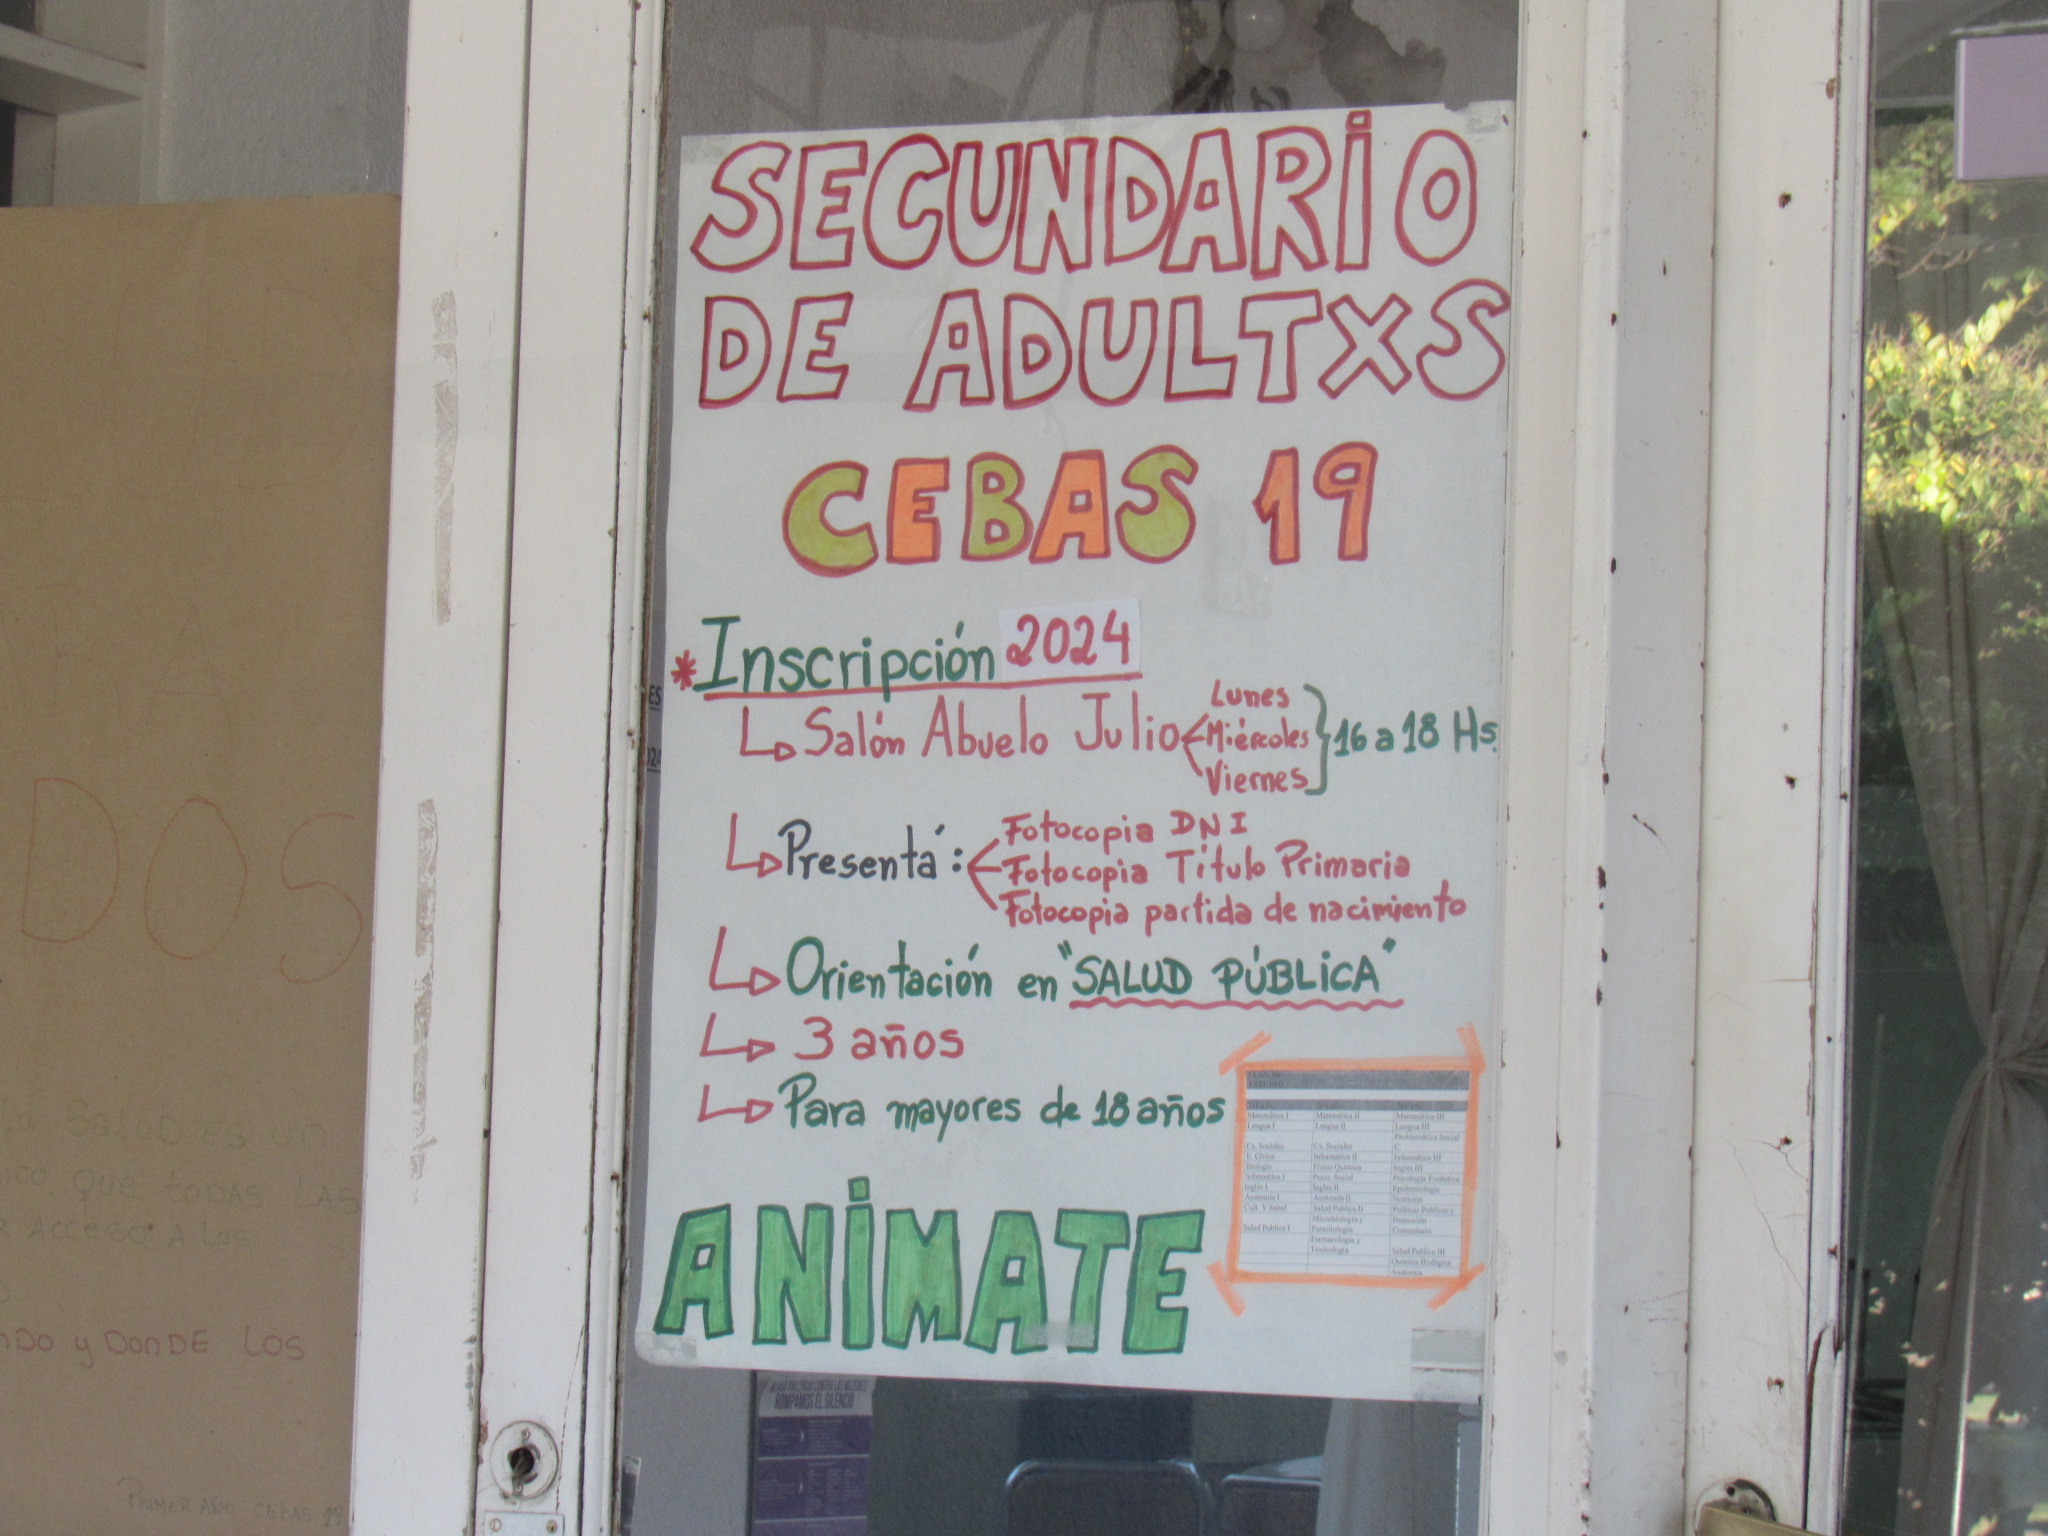 SECUNDARIO
DE ADULTXS
CEBAS 19
* Inscripción 2024
Salón Abuelo Julio
Lunes
Miércoles
Viernes
16 a 18 Hs.
Presentá:
Fotocopia DNI
Fotocopia Título Primaria
Fotocopia partida de nacimiento
Orientación en "SALUD PÚBLICA"
3 años
Para mayores de 18 años
ANÍMATE
Matemática I Matemática II Matemática III
Lengua I Lengua II Lengua III
Problemática Social
Cs. Sociales Cs. Sociales C.
E. Cívica Informática II Informática III
Biología Físico Química Ingles III
Informática I Psico. Social Psicología Evolutiva
Ingles I Ingles II Epidemiología
Anatomía I Anatomía II Nutrición
Cult. Y Salud Salud Pública II Políticas Públicas y
Microbiología y Promoción
Salud Pública I Parasitología Comunitaria
Farmacología y
Toxicología Salud Pública III
Química Biológica
Anatomía
ROMPAMOS EL SILENCIO
DOS
SALUD ES UN
QUE TODAS LAS
ACCESO A LOS
y DONDE LOS
PRIMER AÑO - CEBAS 19